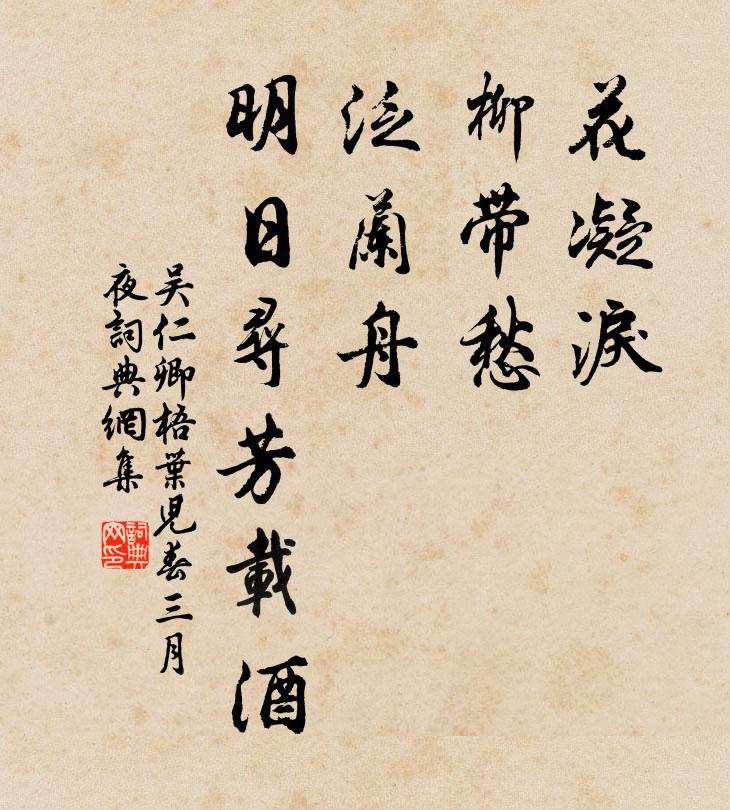 花凝淚
柳帶愁
泛蘭舟
明日尋芳載酒
吴仁卿梧葉児春三月
夜詞典網集
詞典
网印